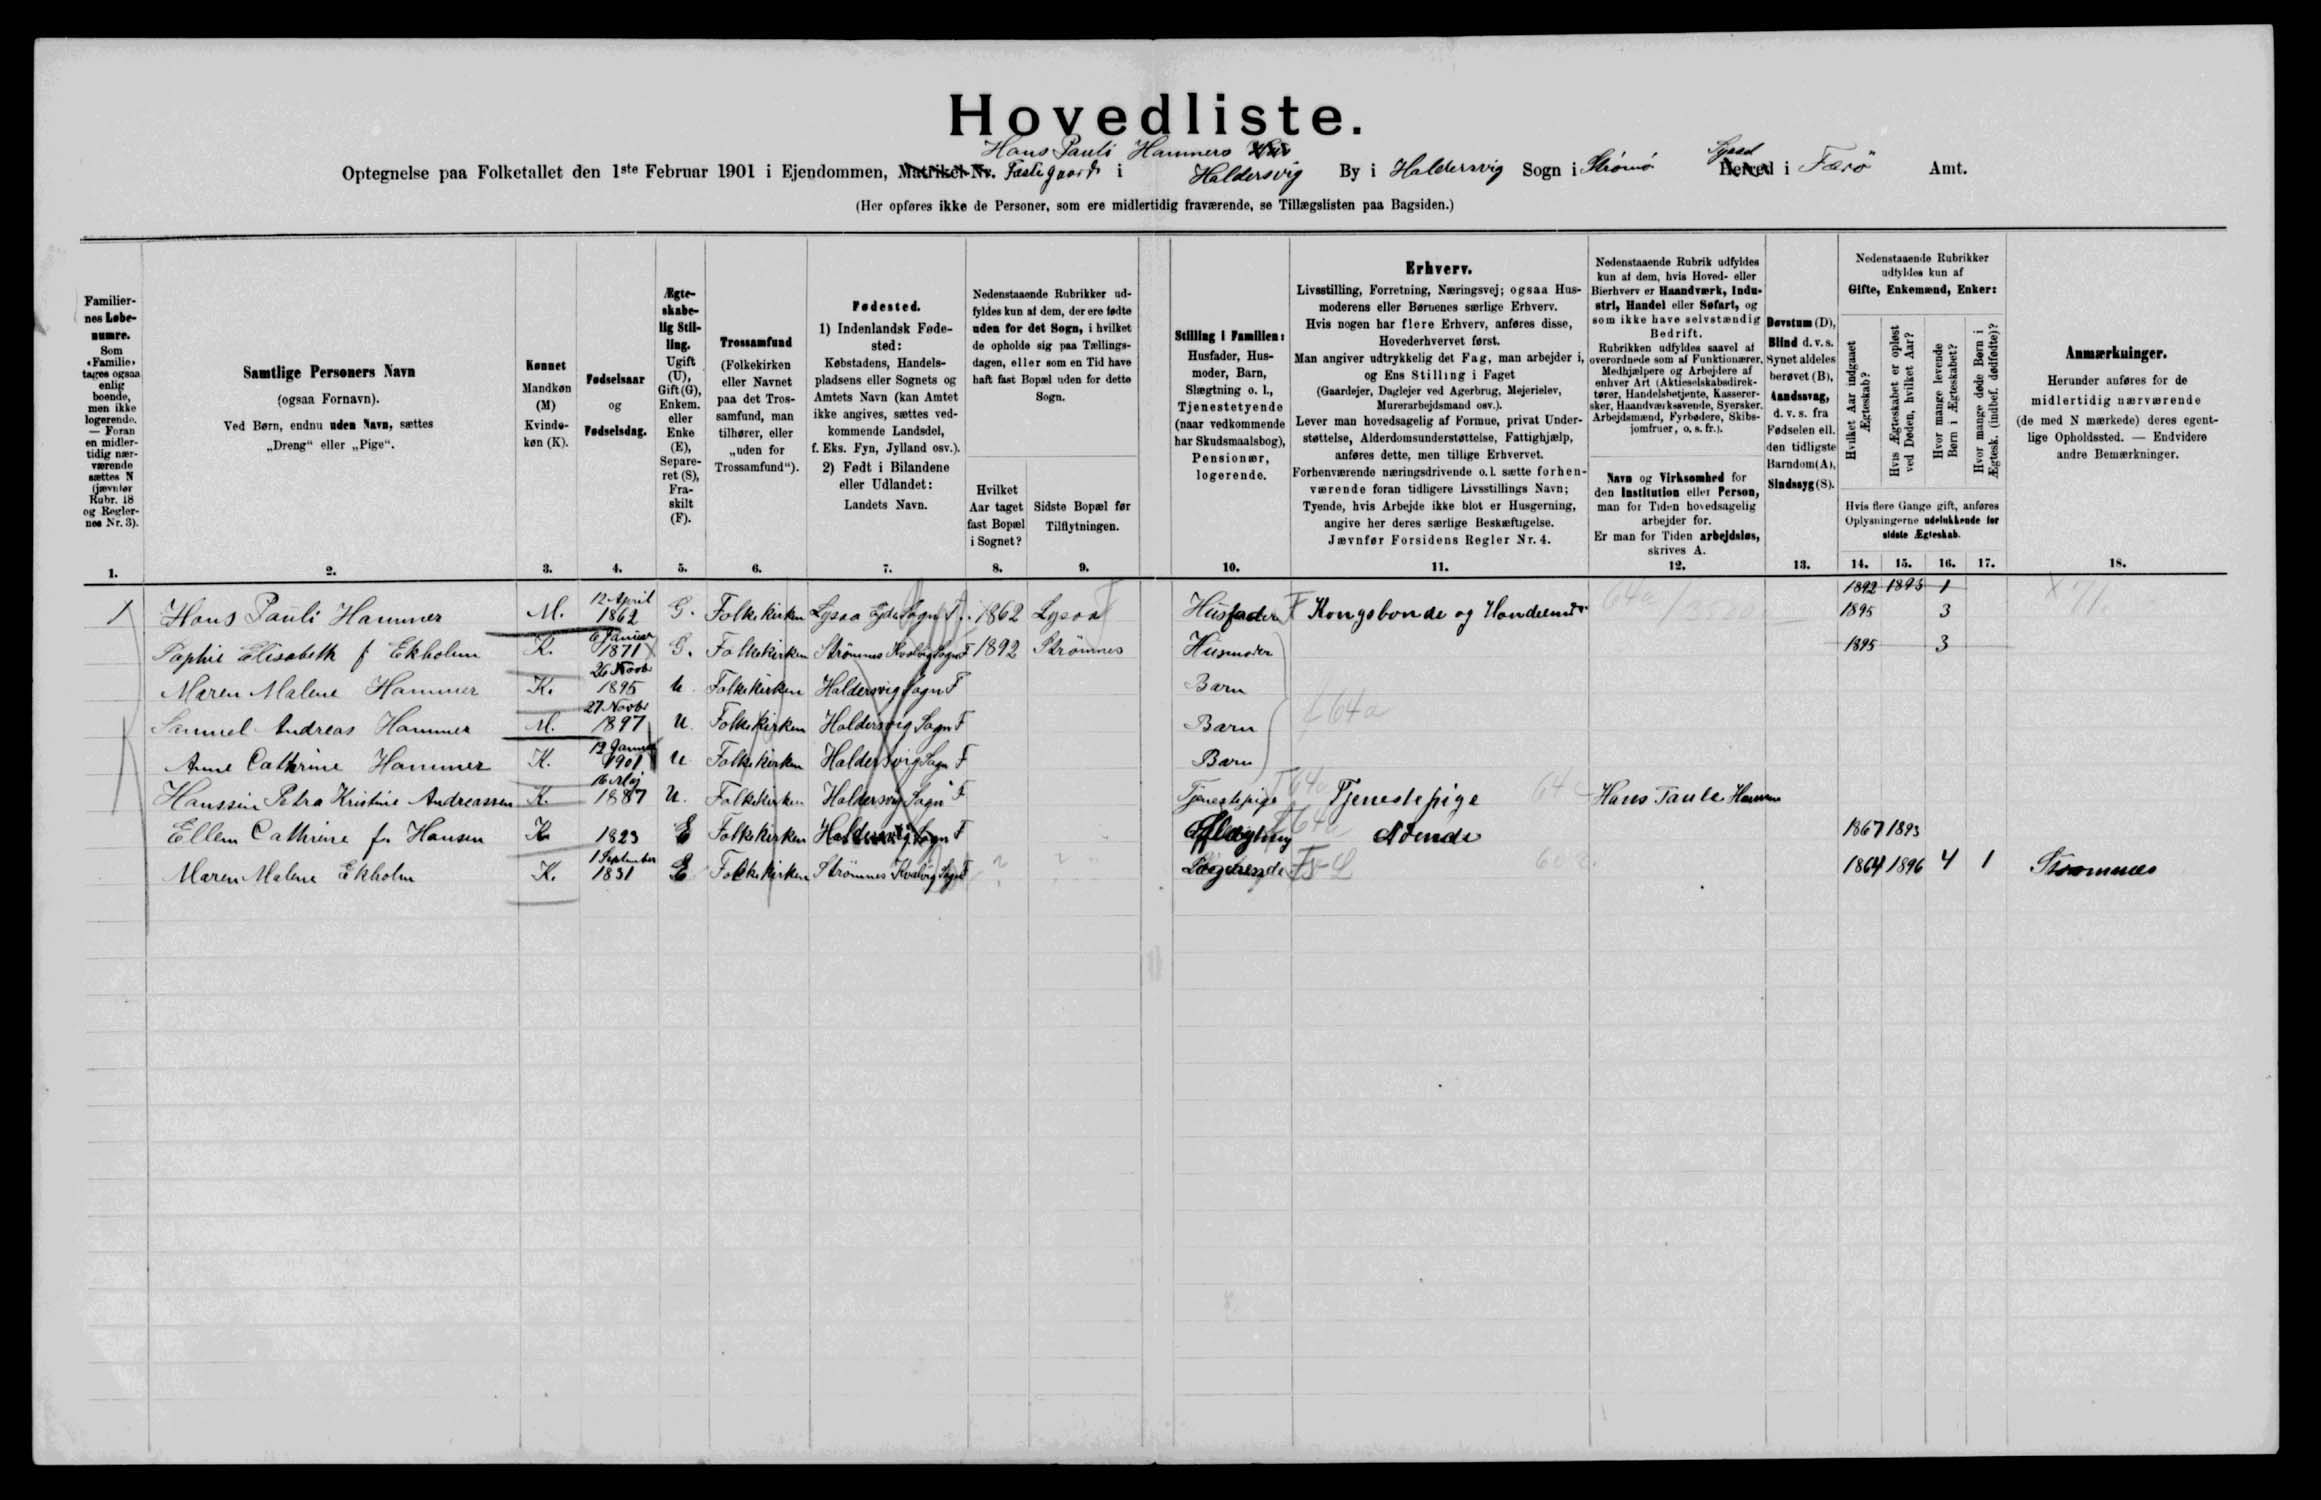 Hovedliste.
Hans Pauli Hammers
Optegnelse paa Folketallet den 1ste Februar 1901 i Ejendommen, Matrikel-Nr. Fæstegaard i Haldersvig By i Haldersvig Sogn i Strömö Syssel Herred i Færö Amt.
(Her opføres ikke de Personer, som ere midlertidig fraværende, se Tillægslisten paa Bagsiden.)
Familier-
nes Løbe-
numre.
Som
«Familie»
tages ogsaa
enlig
boende,
men ikke
logerende.
— Foran
en midler-
tidig nær-
værende
sættes N
(jævnfør
Rubr. 18
og Regler-
nes Nr. 3).
1.
Samtlige Personers Navn
(ogsaa Fornavn).
Ved Børn, endnu uden Navn, sættes
„Dreng“ eller „Pige“.
2.
Kønnet
Mandkøn
(M)
Kvinde-
køn (K).
3.
Fødselsaar
og
Fødselsdag.
4.
Ægte-
skabe-
lig Stil-
ling.
Ugift
(U),
Gift (G),
Enkem.
eller
Enke
(E),
Separe-
ret (S),
Fra-
skilt
(F).
5.
Trossamfund
(Folkekirken
eller Navnet
paa det Tros-
samfund, man
tilhører, eller
„uden for
Trossamfund“).
6.
Fødested.
1) Indenlandsk Føde-
sted:
Købstadens, Handels-
pladsens eller Sognets og
Amtets Navn (kan Amtet
ikke angives, sættes ved-
kommende Landsdel,
f. Eks. Fyn, Jylland osv.).
2) Født i Bilandene
eller Udlandet:
Landets Navn.
7.
Nedenstaaende Rubrikker ud-
fyldes kun af dem, der ere fødte
uden for det Sogn, i hvilket
de opholde sig paa Tællings-
dagen, eller som en Tid have
haft fast Bopæl uden for dette
Sogn.
Hvilket
Aar taget
fast Bopæl
i Sognet?
8.
Sidste Bopæl før
Tilflytningen.
9.
Stilling i Familien:
Husfader, Hus-
moder, Barn,
Slægtning o. l.,
Tjenestetyende
(naar vedkommende
har Skudsmaalsbog),
Pensionær,
logerende.
10.
Erhverv.
Livsstilling, Forretning, Næringsvej; ogsaa Hus-
moderens eller Børnenes særlige Erhverv.
Hvis nogen har flere Erhverv, anføres disse,
Hovederhvervet først.
Man angiver udtrykkelig det Fag, man arbejder i,
og Ens Stilling i Faget
(Gaardejer, Daglejer ved Agerbrug, Mejerielev,
Murerarbejdsmand osv.).
Lever man hovedsagelig af Formue, privat Under-
støttelse, Alderdomsunderstøttelse, Fattighjælp,
anføres dette, men tillige Erhvervet.
Forhenværende næringsdrivende o. l. sætte forhen-
værende foran tidligere Livsstillings Navn;
Tyende, hvis Arbejde ikke blot er Husgerning,
angive her deres særlige Beskæftigelse.
Jævnfør Forsidens Regler Nr. 4.
11.
Nedenstaaende Rubrik udfyldes
kun af dem, hvis Hoved- eller
Bierhverv er Haandværk, Indu-
stri, Handel eller Søfart, og
som ikke have selvstændig
Bedrift.
Rubrikken udfyldes saavel af
overordnede som af Funktionærer,
Medhjælpere og Arbejdere af
enhver Art (Aktieselskabsdirek-
tører, Handelsbetjente, Kasserer-
sker, Haandværkssvende, Syersker,
Arbejdsmænd, Fyrbødere, Skibs-
jomfruer, o. s. fr.).
Navn og Virksomhed for
den Institution eller Person,
man for Tiden hovedsagelig
arbejder for.
Er man for Tiden arbejdsløs,
skrives A.
12.
Døvstum (D),
Blind d. v. s.
Synet aldeles
berøvet (B),
Aandssvag,
d. v. s. fra
Fødselen ell.
den tidligste
Barndom (A),
Sindssyg (S).
13.
Nedenstaaende Rubrikker
udfyldes kun af
Gifte, Enkemænd, Enker:
Hvilket Aar indgaaet
Ægteskab?
Hvis Ægteskabet er opløst
ved Døden, hvilket Aar?
Hvor mange levende
Børn i Ægteskabet?
Hvor mange døde Børn i
Ægtesk. (indbef. dødfødte)?
Hvis flere Gange gift, anføres
Oplysningerne udelukkende for
sidste Ægteskab.
14. 15. 16. 17.
Anmærkninger.
Herunder anføres for de
midlertidig nærværende
(de med N mærkede) deres egent-
lige Opholdssted. — Endvidere
andre Bemærkninger.
18.
12 April 1892 1893 1
1 Hans Pauli Hammer M. 1862 G. Folkekirken Lysaa Ejde Sogn F. 1862 Lysaa Husfader F Kongsbonde og 64a 1895 3
6 Januar
Sophie Elisabeth f Ekholm K. 1871 G. Folkekirken Strömnes Kvalvig Sogn F 1892 Strömnes Husmoder 1895 3
26 Novbr
Maren Malene Hammer K. 1895 U. Folkekirken Haldersvig Sogn F Barn
27 Novbr
Samuel Andreas Hammer M. 1897 U. Folkekirken Haldersvig Sogn F Barn f 64a
12 Januar
Anne Cathrine Hammer K. 1901 U Folkekirken Haldersvig Sogn F Barn
16 Maj
Hanssine Petra Kristine Andreassen K. 1887 U. Folkekirken Haldersvig Sogn F Tjenestepige T 64a Tjenestepige 64 Hans Paule Hammer
Ellen Cathrine f. Hansen K 1823 E Folkekirken Haldersvig Sogn F 64a 1867 1893
1 September
Maren Malene Ekholm K. 1831 E Folkekirken Strömnes Kvalvig Sogn F Logerende 1864 1896 4 1 Strømmes